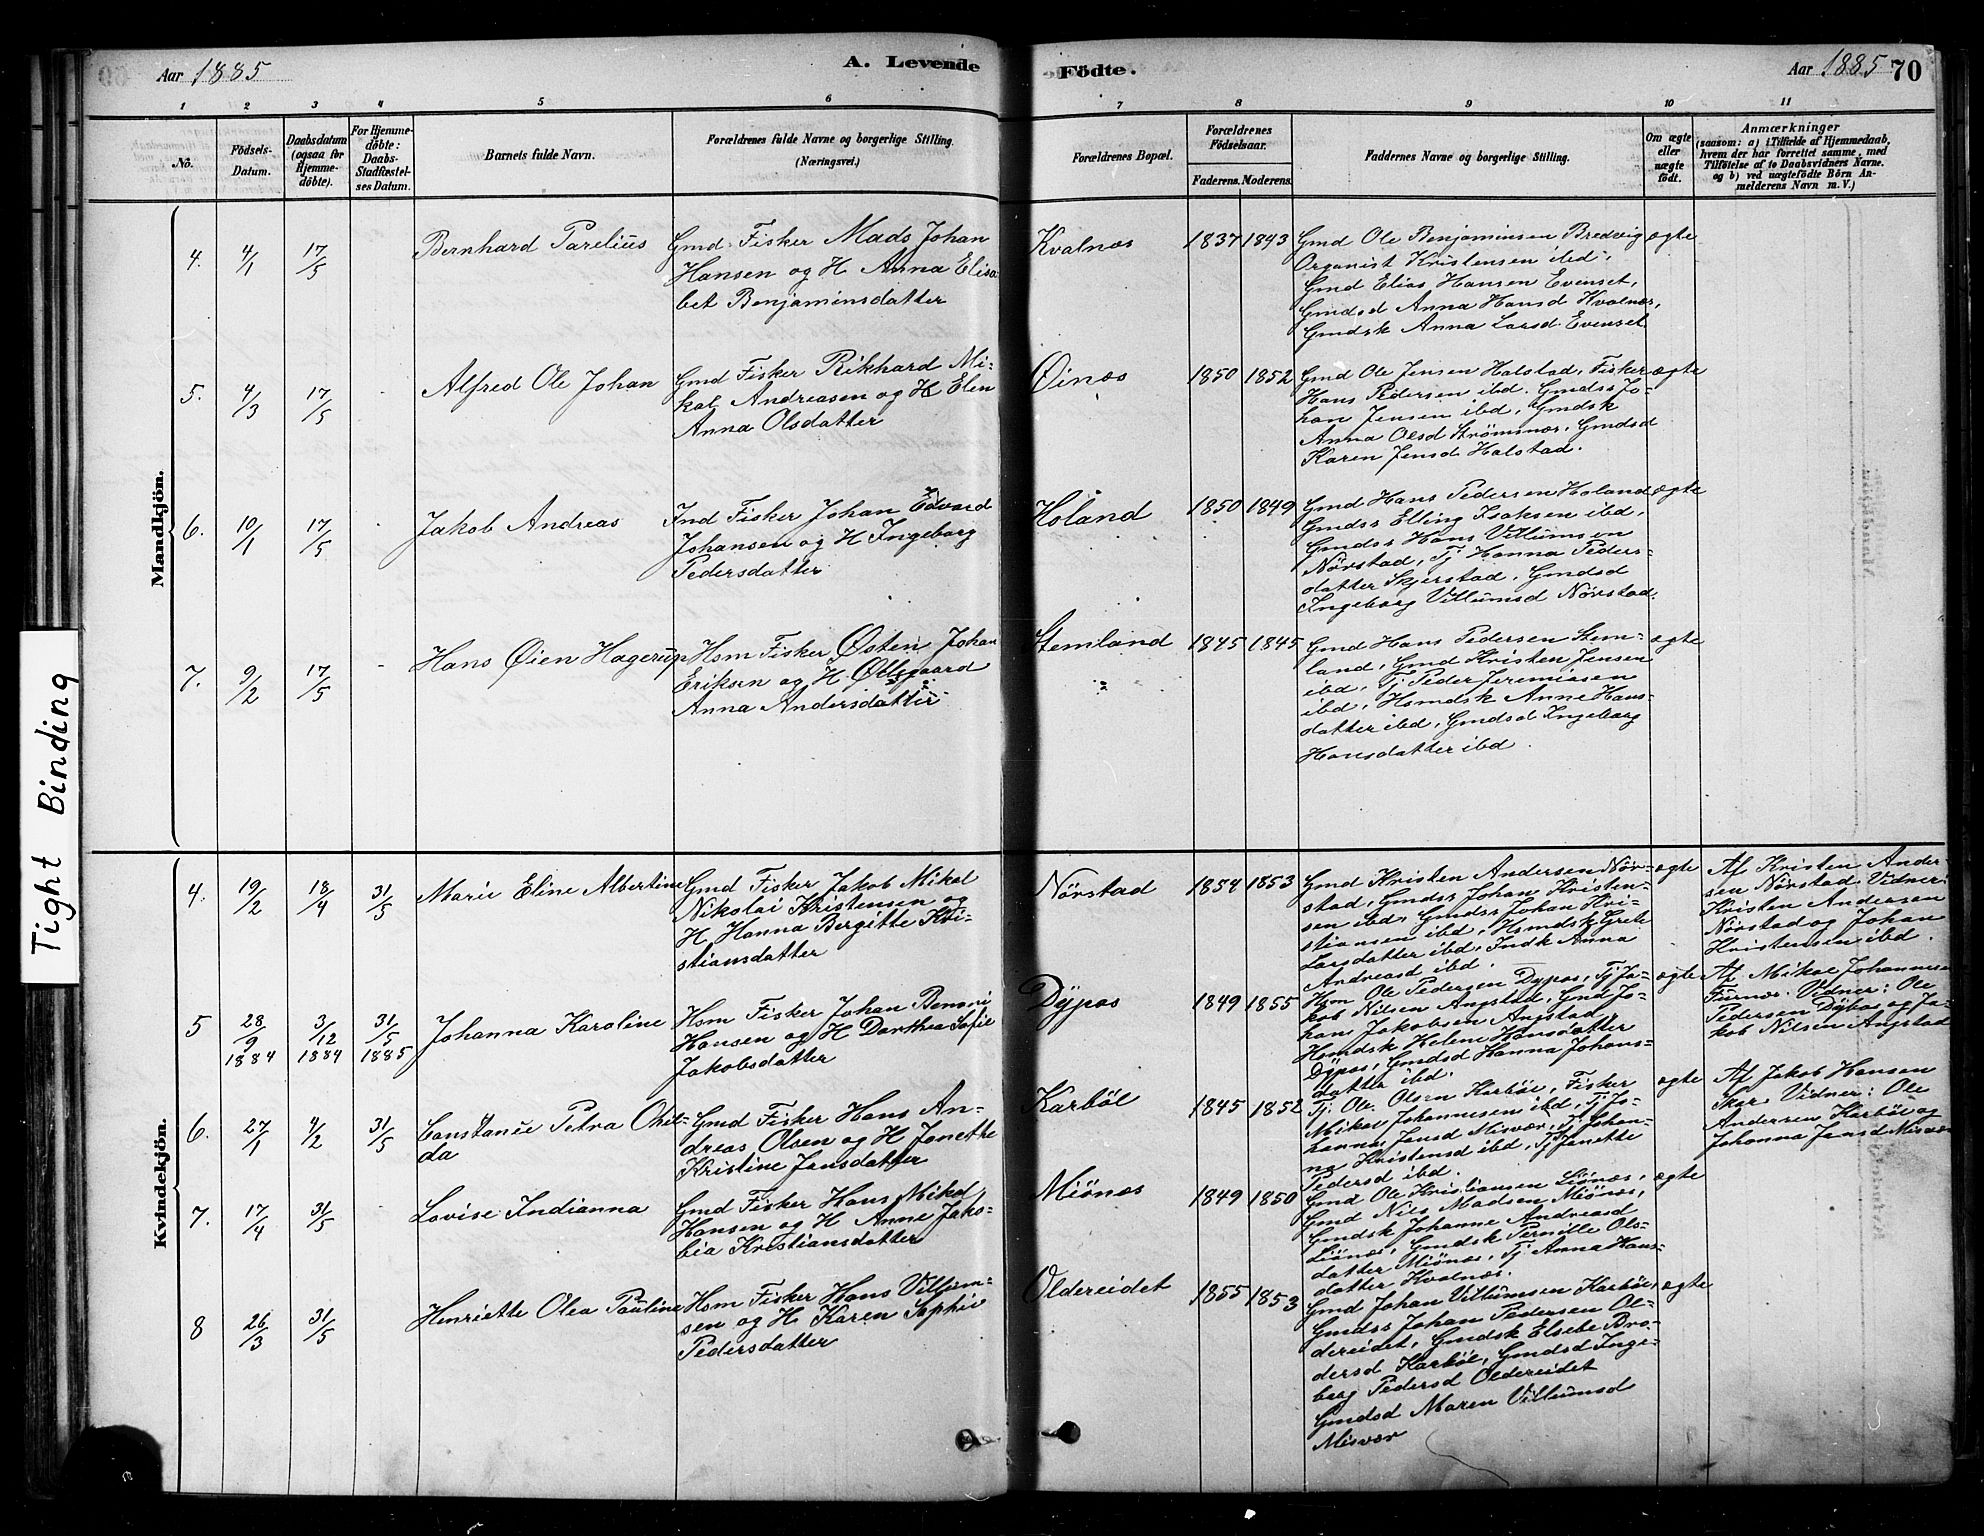 Aar 1885
A. Levende Födte.
Aar 1885 70
1 2 3 4 5 6 7 8 9 10 11
No.
Födsels-Datum.
Daabsdatum (ogsaa for Hjemme-döbte).
For Hjemme-döbte: Daabs-Stadfæstel-ses Datum.
Barnets fulde Navn.
Forældrenes fulde Navne og borgerlige Stilling. (Næringsvei.)
Forældrenes Bopæl.
Forældrenes Födselsaar.
Faderens. Moderens.
Faddernes Navne og borgerlige Stilling.
Om ægte eller uægte födt.
Anmærkninger
(saasom: a) i Tilfælde af Hjemmedaab,
hvem der har forrettet samme, med
Tilföielse af to Daabsvidners Navne.
og b) ved uægtefödte Börn An-
melderens Navn m. V.)
Tight Binding
Mandkjön.
4. 4/1 17/5
Bernhard Parelius
Gmd. Fisker Mads Johan
Hansen og H. Anna Elisa-
bet Benjaminsdatter
Kvalnæs
1837 1843
Gmd Ole Benjaminsen Bredvig
Organist Kristensen ibd,
Gmd Elias Hansen Evenset,
Gmdsd Anna Hansd Kvalnæs,
Gmdsk Anna Larsd. Evenset
ægte
5. 4/3 17/5
Alfred Ole Johan
Gmd Fisker Rikhard Mi-
kal Andreasen og H. Elen
Anna Olsdatter
Öinæs
1850 1852
Gmd Ole Jensen Halstad, Fisker
Hans Pedersen ibd. Gmdss Jo-
han Jensen ibd, Gmdsk
Anna Olsd Strömsnæs, Gmdsd
Karen Jensd Halstad.
ægte
6. 10/1 17/5
Jakob Andreas
Ind Fisker Johan Edvard
Johansen og H. Ingeborg
Pedersdatter
Håland
1850 1849
Gmd Hans Pedersen Håland
Gmdss Elling Isaksen ibd,
Gmdss Hans Villumsen
Nörstad, Tj Hanna Peders-
datter Skjerstad, Gmdsd
Ingeborg Villumsd Nörstad.
ægte
7. 9/2 17/5
Hans Øien Hagerup
Hsm Fisker Østen Johan
Eriksen og H. Øllegaard
Anna Andersdatter
Stemland
1845 1845
Gmd Hans Pedersen Stem-
land, Gmd Kristen Jensen
ibd, Tj Peder Jeremiasen
ibd, Hsmdsk Anne Hans-
datter ibd, Gmdsd Ingeborg
Hansdatter ibd.
ægte
Kvindekjön.
4. 19/2 18/4 31/5
Marie Eline Albertine
Gmd Fisker Jakob Mikal
Nikolai Kristensen og
H. Hanna Bergitte Kri-
stiansdatter
Nörstad
1854 1853
Gmd Kristen Andersen Nör-
stad, Gmdss Johan Kristen-
sen ibd, Gmdss Johan Kri-
stiansen ibd, Hsmdsk Grete
Larsdatter ibd, Indk Anna
Andreasd ibd.
ægte
Af Kristen Ander-
sen Nörstad. Vidner:
Kristen Andersen
Nörstad og Johan
Kristensen ibd.
5 28/9 1884 3/12 1884 31/5 1885
Johanna Karoline
Hsm Fisker Johan Benoni
Hansen og H Dorthea Sofie
Jakobsdatter
Dypos
1849 1855
Hsm Ole Pedersen Dypos, Tj Ja-
kob Nilsen Angstad, Gmd Jo-
han Jakobsen Angstad
Hsmdsk Helene Hansdatter
Dypos, Gmdsd Hanna Johans-
datter ibd.
ægte
Af Mikal Johannesen
Furnæs. Vidner: Ole
Pedersen Dypos og Ja-
kob Nilsen Angstad
6. 27/1 4/2 31/5
Constance Petra Ovel-
da
Gmd Fisker Hans An-
dreas Olsen og H Janette
Kristine Jansdatter
Karböl
1845 1852
Tj. Ole Olsen Karböl, Fisker
Mikal Johannesen ibd, Tj Jo-
hannes Jensd Misvær, Tj Johan-
na Kristensd ibd, Tj Janette
Pedersd ibd.
ægte
Af Jakob Hansen
Skar Vidner: Ole
Andersen Karböl og
Johanna Jansd Misvær
7. 17/4 31/5
Lovise Indianna
Gmd Fisker Hans Mikal
Hansen og H Anne Jako-
bia Kristiansdatter
Miönæs
1849 1850
Gmd Ole Kristiansen Liönæs,
Gmd Nils Madsen Miönæs,
Gmdsk Johanne Andreasd
Liönæs, Gmdsk Pernille Ols-
datter Miönæs, Tj Anna Hans-
datter Kvalnæs.
ægte
8 26/3 31/5
Henriette Olea Pauline
Hsm Fisker Hans Villum-
sen og H. Karen Sophie
Pedersdatter
Oldereidet
1855 1853
Gmd Johan Villumsen Karböl,
Gmdss Johan Pedersen Ol-
dereidet, Gmdsk Elsebe Bro-
dersd Karböl, Gmdsd Inge-
borg Pedersd Oldereidet
Gmdsd Maren Villumsd
Misvær
ægte